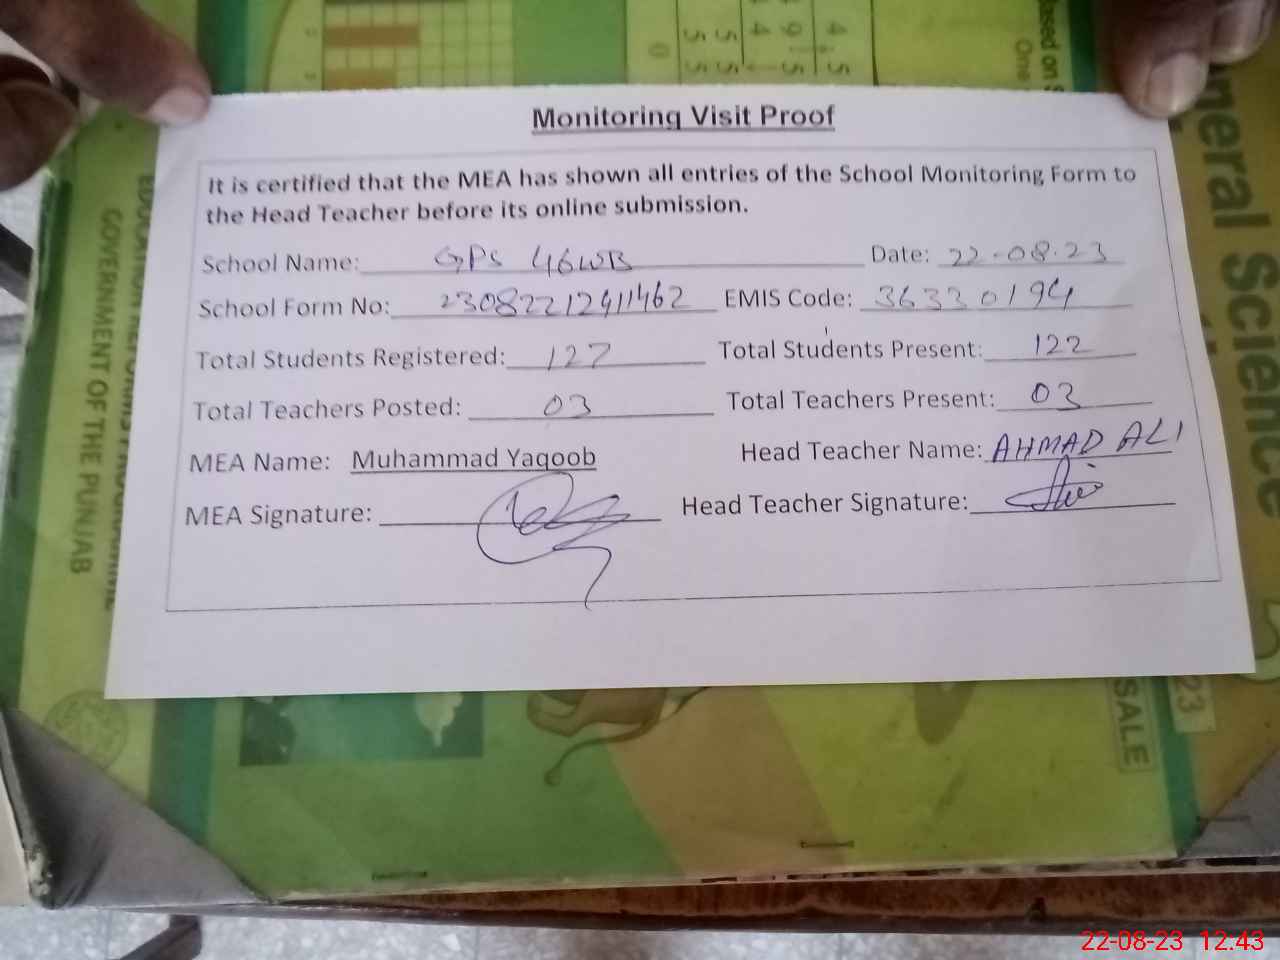 Monitoring Visit Proof
It is certified that the MEA has shown all entries of the School Monitoring Form to
the Head Teacher before its online submission.
School Name: GPS 46WB Date: 22-08-23
School Form No: 23082212411462 EMIS Code: 36330194
Total Students Registered: 127 Total Students Present: 122
Total Teachers Posted: 03 Total Teachers Present: 03
MEA Name: Muhammad Yaqoob Head Teacher Name: AHMAD ALI
MEA Signature: Head Teacher Signature:
GOVERNMENT OF THE PUNJAB
Science
SALE
22-08-23 12.43